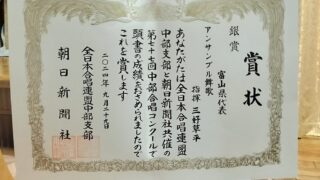 賞状
銀賞
富山県代表
アンサンブル舞歌
指揮 三好草平
あなたがたは全日本合唱連盟
中部支部と朝日新聞社共催の
第七十七回中部合唱コンクールで
頭書の成績をおさめられましたので
これを賞します
二〇二四年九月二十九日
全日本合唱連盟中部支部
朝日新聞社